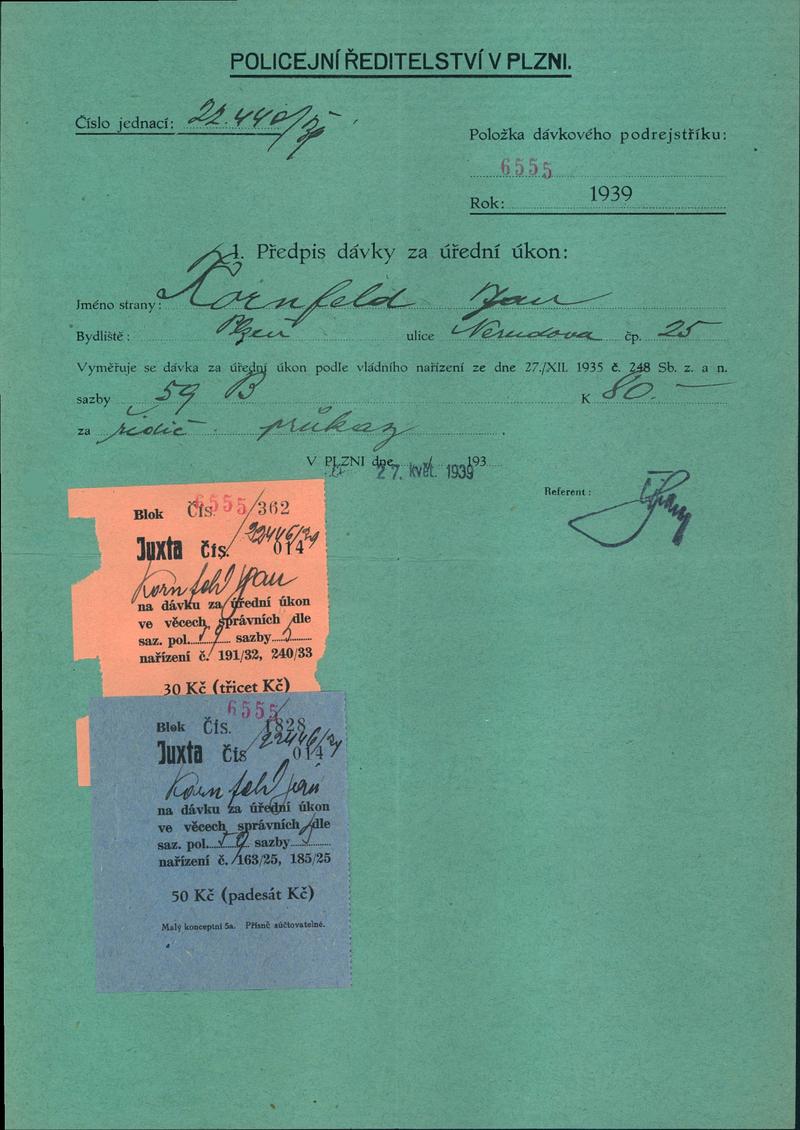 POLICEJNÍ ŘEDITELSTVÍ V PLZNI.
Číslo jednací: 22.440/39
Položka dávkového podrejstříku:
6555
Rok: 1939
1. Předpis dávky za úřední úkon:
Jméno strany: Kornfeld Jan
Bydliště: Plzeň ulice Nerudova čp. 25
Vyměřuje se dávka za úřední úkon podle vládního nařízení ze dne 27./XII. 1935 č. 248 Sb. z. a n.
sazby 59 B K 80.—
za řidič. průkaz
V PLZNI dne 27. květ. 1939 193
Referent:
6555
Blok Čís. /362
22446/39
Juxta čís. 014
Kornfeld Jan
na dávku za úřední úkon
ve věcech správních dle
saz. pol. 59 sazby 5
nařízení č. 191/32, 240/33
30 Kč (třicet Kč)
6555
Blok Čís. 1828
22446/39
Juxta čís 014
Kornfeld Jan
na dávku za úřední úkon
ve věcech správních dle
saz. pol. 59 sazby 5
nařízení č. 163/25, 185/25
50 Kč (padesát Kč)
Malý konceptní 5a. Přísně súčtovatelné.